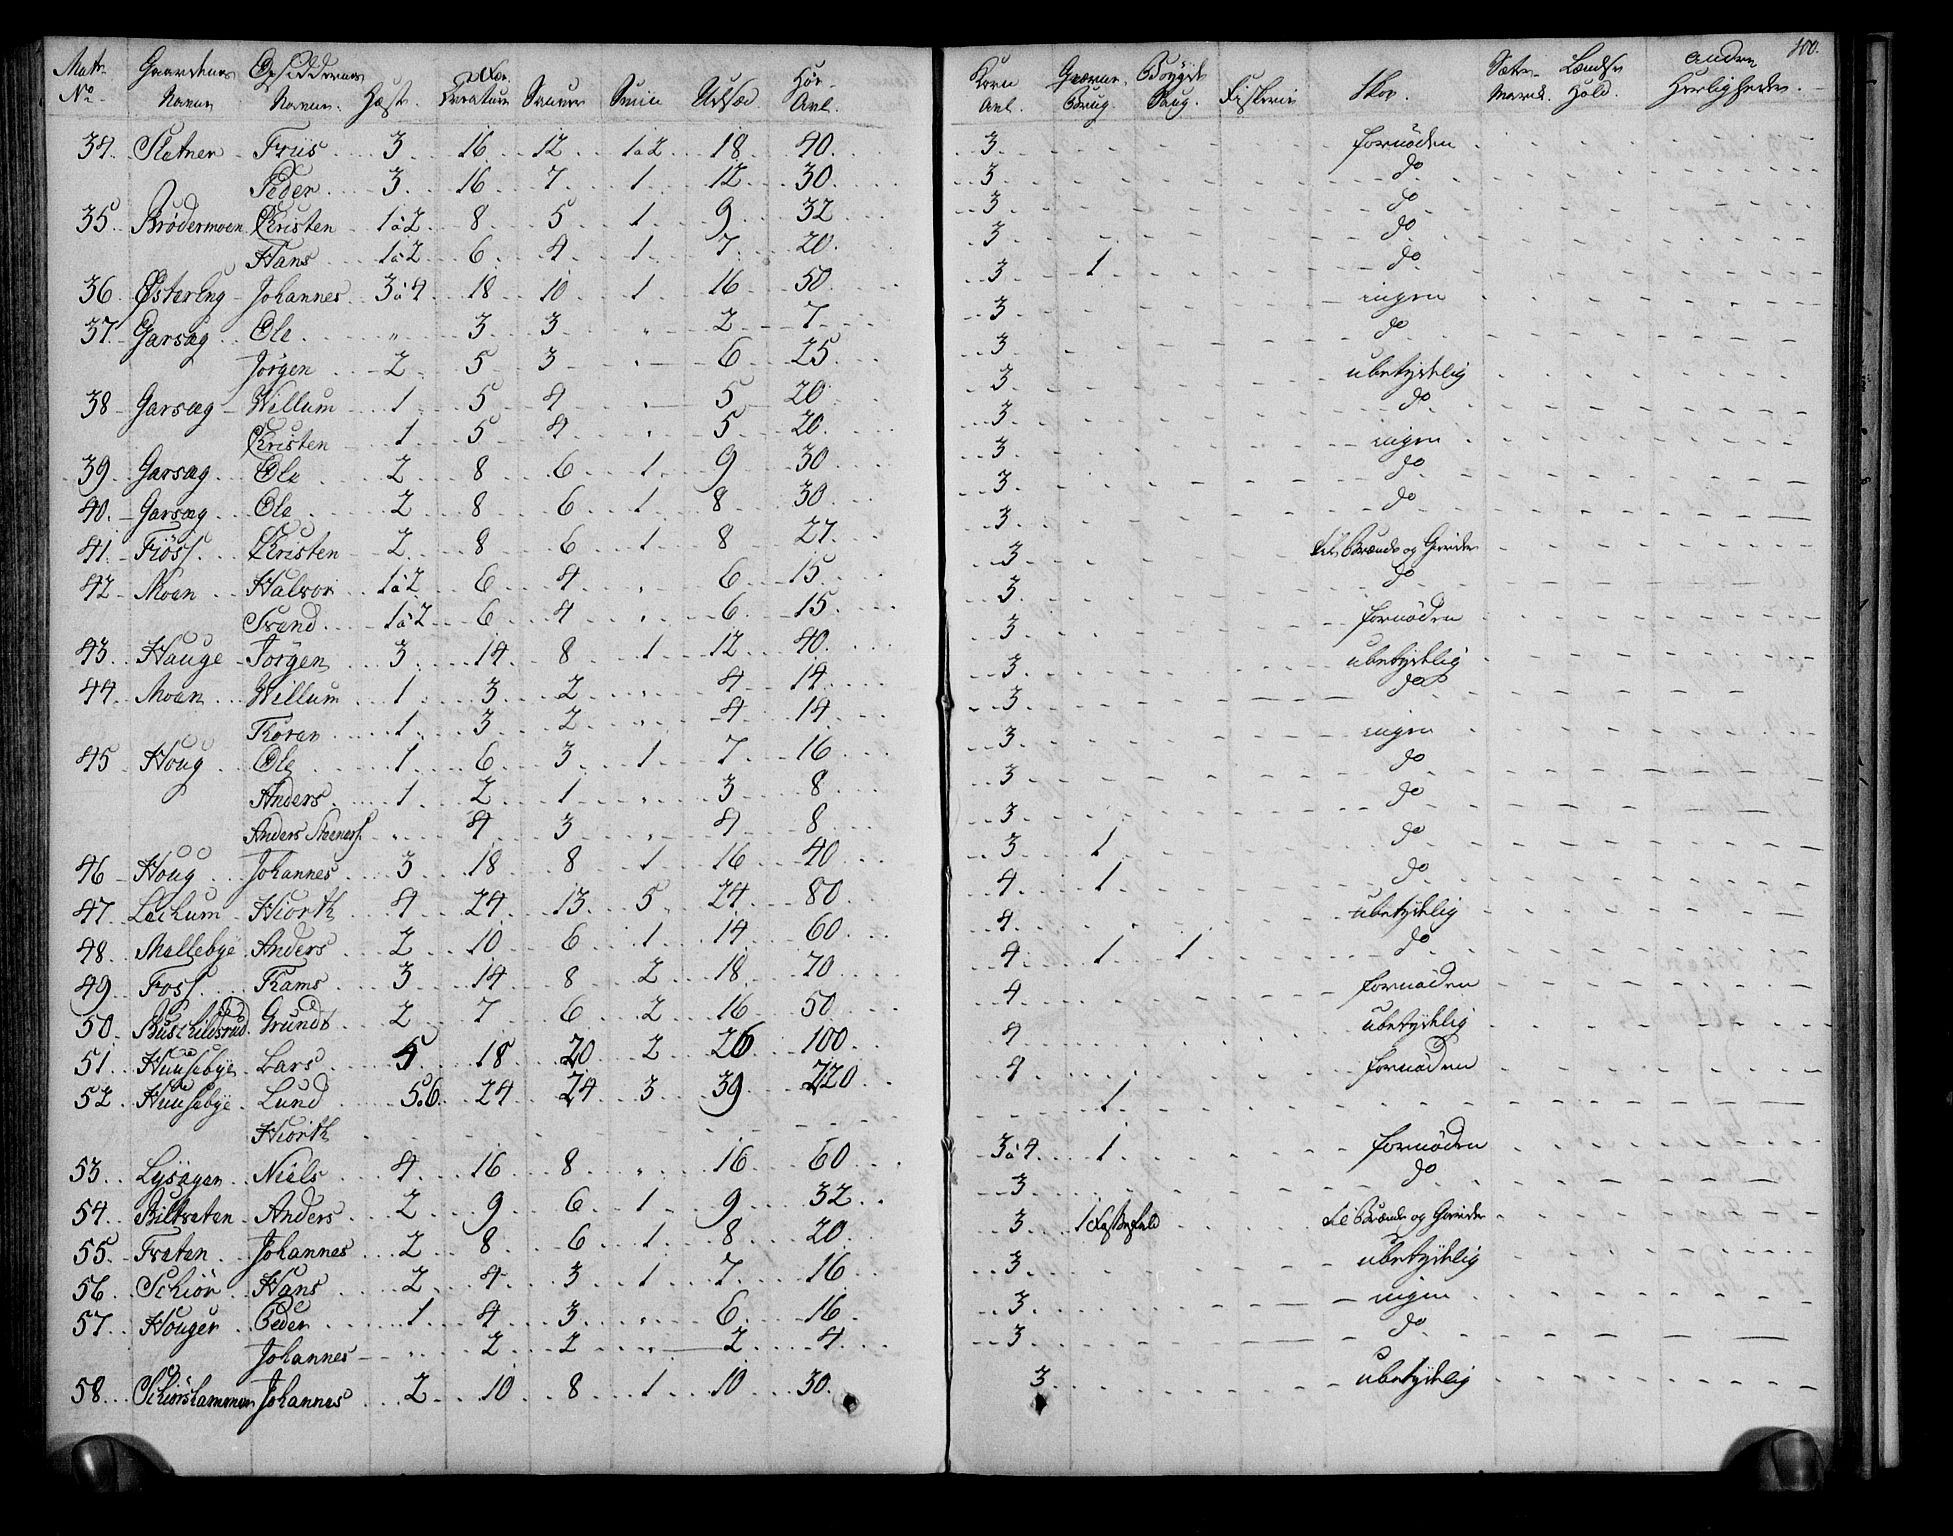 100.
Matr. No. Gaardenes Navne Opsiddernes Navne. Hæst. Stor Creature Sauer Sviin Udsæd. Høe-Avl. Korn Avl. Qværne Brug. Bøygde Saug. Fiskerie Skov. Sæter-Marck. Lændse Hold. Andre Herligheder.
34. Sletner Friis 3 16 12 1a2 18 40 3 fornøden
Peder 3 16 7 1 12 30 3 do
35 Brødermoen Christen 1a2 8 5 1 9 32 3 do
Hans 1a2 6 4 1 7 20 3 do
36 ØsterEng Johannes 3a4 18 10 1 16 50 3 1 do
37 Garsæg Ole " 3 3 " 2 7 3 ingen
Jørgen 2 5 3 " 6 25 3 do
38 Garsæg Willum 1 5 4 " 5 20 3 ubetydelig
Christen 1 5 4 " 5 20 3 do
39 Garsæg Ole 2 8 6 1 9 30 3 ingen
40 Garsæg Ole 2 8 6 1 8 30 3 do
41 Fiøss Christen 2 8 6 1 8 27 3 do
42 Moen Halvor 1a2 6 4 " 6 15 3 til Brænde og Gierder
Svend 1a2 6 4 " 6 15 3 do
43 Hauge Jørgen 3 14 8 1 12 40 3 fornøden
44 Moen Willum 1 3 2 " 4 14 3 ubetydelig
Thoren 1 3 2 " 4 14 3 do
45 Houg Ole 1 6 3 1 7 16 3 ingen
Anders 1 2 1 " 3 8 3 do
Anders Steeners. " 4 3 " 4 8 3 do
46 Houg Johannes 3 18 8 1 16 40 3 1 do
47 Lechum Hiorth 4 24 13 5 24 80 4 1 do
48 Mellebye Anders 2 10 6 1 14 60 4 ubetydelig
49 Foss Thams 3 14 8 2 18 70 4 1 1 do
50 Buschildsrud Grundt 2 7 6 2 16 50 4 fornøden
51 Huusebye Lars 5 18 20 2 26 100 4 ubetydelig
52 Huusebye Lund 5a6 24 24 3 39 220 4 fornøden
Hiorth 1
53 Lysagen Niels 4 16 8 " 16 60 3a4 1 fornøden
54 Biltveten Anders 2 9 6 1 9 32 3 do
55 Tveten Johannes 2 8 6 1 8 20 3 1 til Brænde og Gierder
56 Schiør Hans 2 4 3 1 7 16 3 ubetydelig
57 Houger Peder 1 4 3 " 6 16 3 ingen
Johannes " 2 2 " 2 4 3 do
58 Schiørshammer Johannes 2 10 8 1 10 30 3 ubetydelig